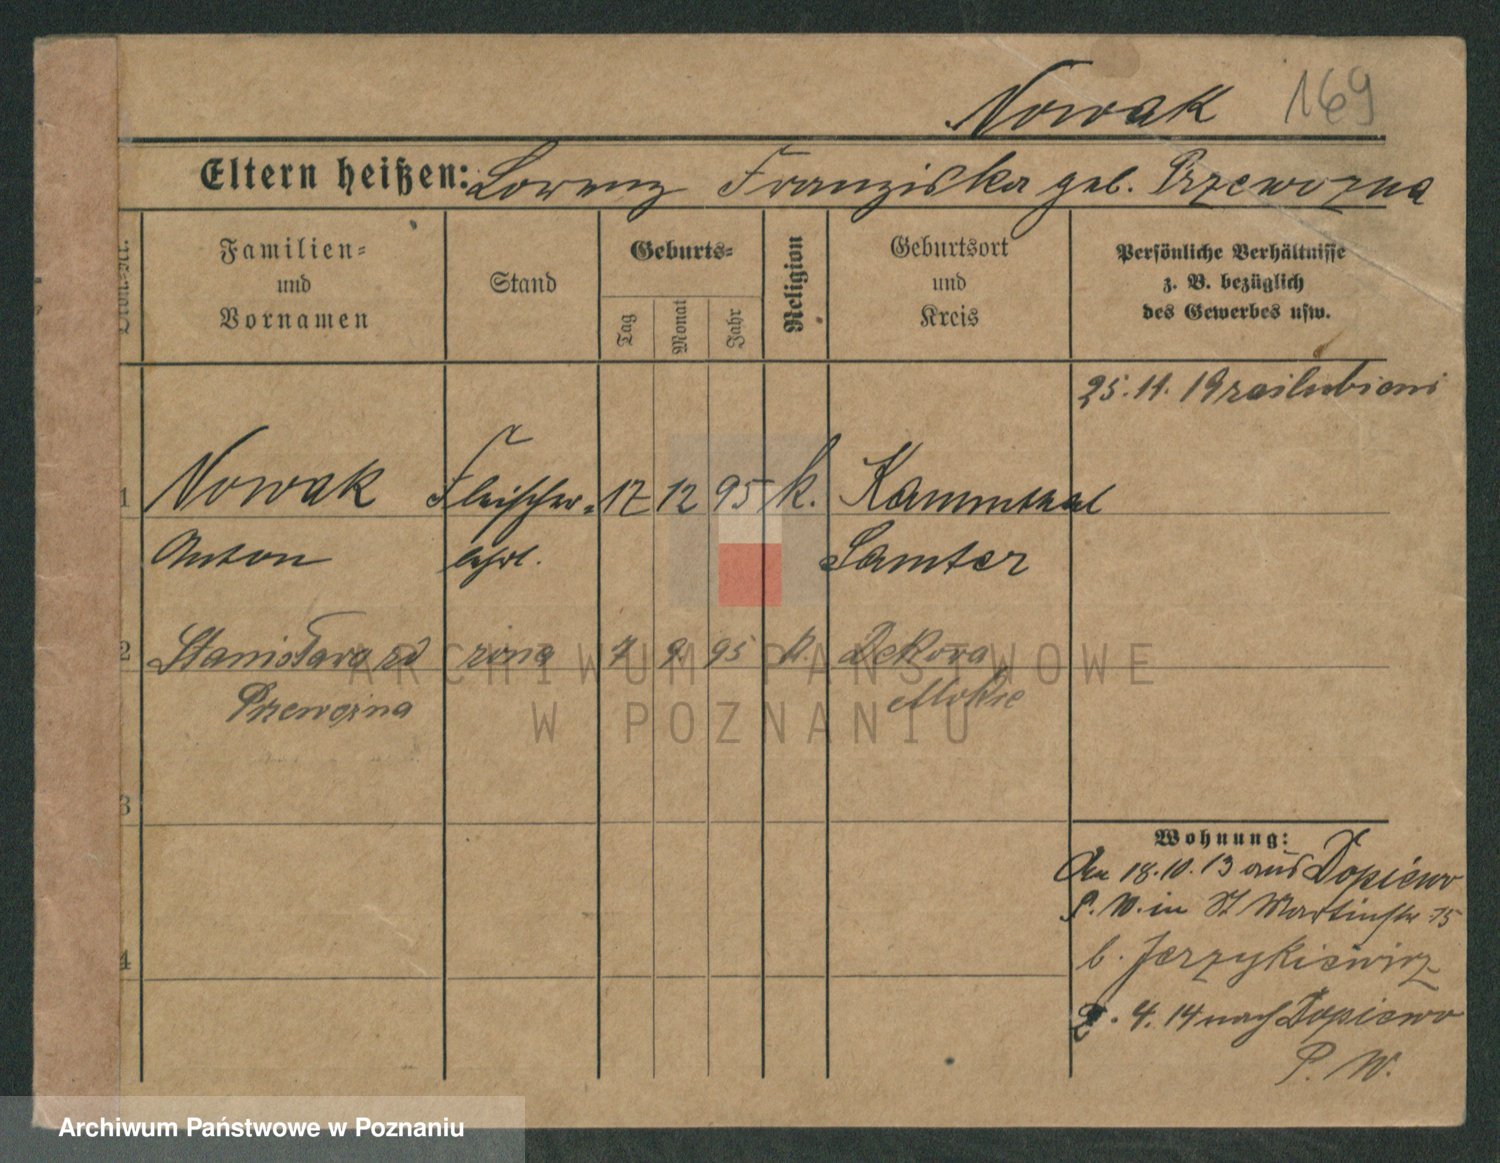 Nowak 169
Eltern heißen: Lorenz Franziska geb. Przewozna
Familien=
und
Vornamen
Stand
Geburts=
Tag
Monat
Jahr
Religion
Geburtsort
und
Kreis
Persönliche Verhältnisse
z. B. bezüglich
des Gewerbes usw.
25.11.19 zaslubieni
1 Nowak Fleischer= 17 12 95 k. Kammthal
Anton lehrl. Samter
2 Stanisława zd żona 7 9 95 k.
Przewozna Mokre
3
4
Wohnung:
An 18.10.13 aus Dopiewo
P. W. in St Martinstr 75
b. Jerzykiewicz
4. 14 nach Dopiewo
P. W.
ARCHIWUM PAŃSTWOWE
W POZNANIU
Archiwum Państwowe w Poznaniu